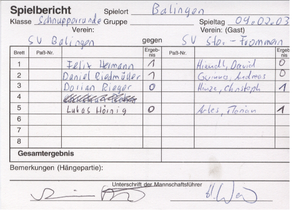 Spielbericht Spielort Balingen
Klasse Schnupperrunde Gruppe Spieltag 09.02.03
Verein: Verein: (Gast)
SV Balingen gegen SV Stbr.-Frommern
Brett Paß-Nr. Ergebnis Paß-Nr. Ergebnis
1 Felix Heimann 1 David 0
2 Daniel Riedmüller 1 Andreas 0
3 Dorian Rieger 0 Christoph 1
4
5 Lukas Hornig 0 Florian 1
Gesamtergebnis
Bemerkungen (Hängepartie):
Unterschrift der Mannschaftsführer